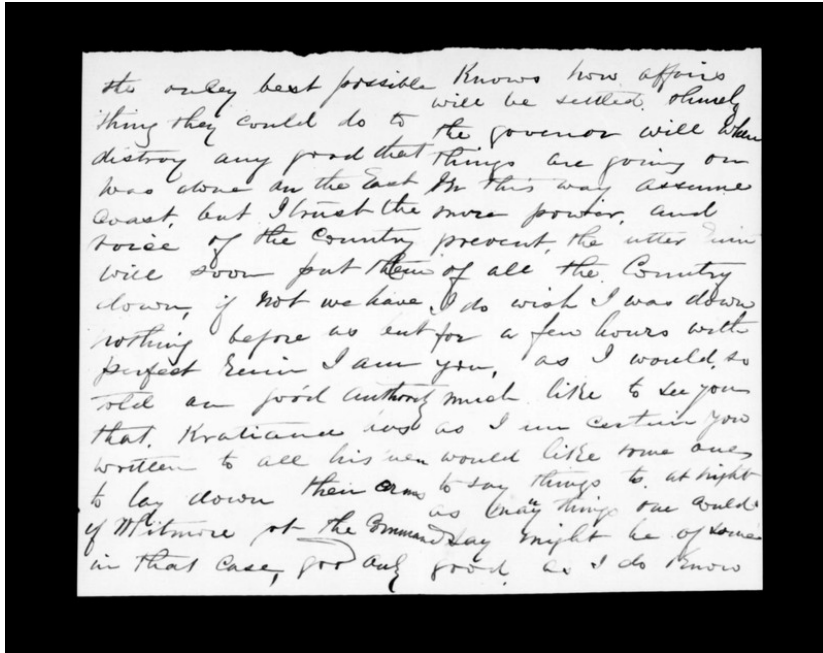 the onley best possible
thing they could do to
distroy any good that
was done on the East
Coast, but I trust the
voice of the Country
will soon put them
down, if not we have
nothing before us but
perfect Ruin I am
told on good Authority
that.
written to all his men
to lay down their arms
if Whitmore got the Command
in that case, god only
Knows how affairs
will be settled. shurely
the govenor will when
things are going on
in this way assume
more power, and
prevent, the utter Ruin
of all the Country
I do wish I was down
for a few hours with
you, as I would, so
much like to see you
as I am certain you
would like some one,
to say things to. at night
as many things one could
say might be of some
good. as I do Know